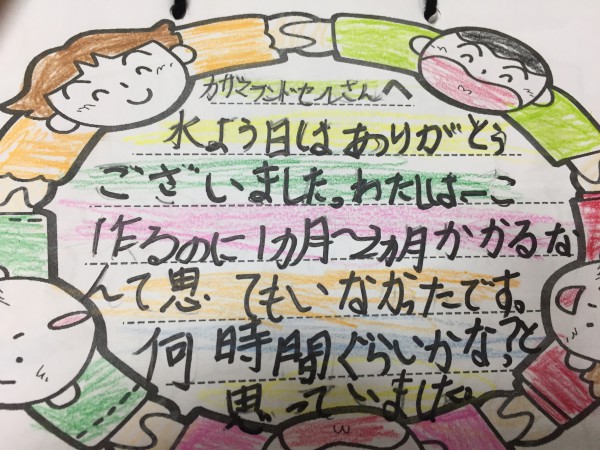 カザマランドセルさんへ
水よう日はありがとう
ございました。わたしは一こ
作るのに1カ月〜2カ月かかるな
んて思ってもいなかったです。
何時間ぐらいかな?と
思っていました。